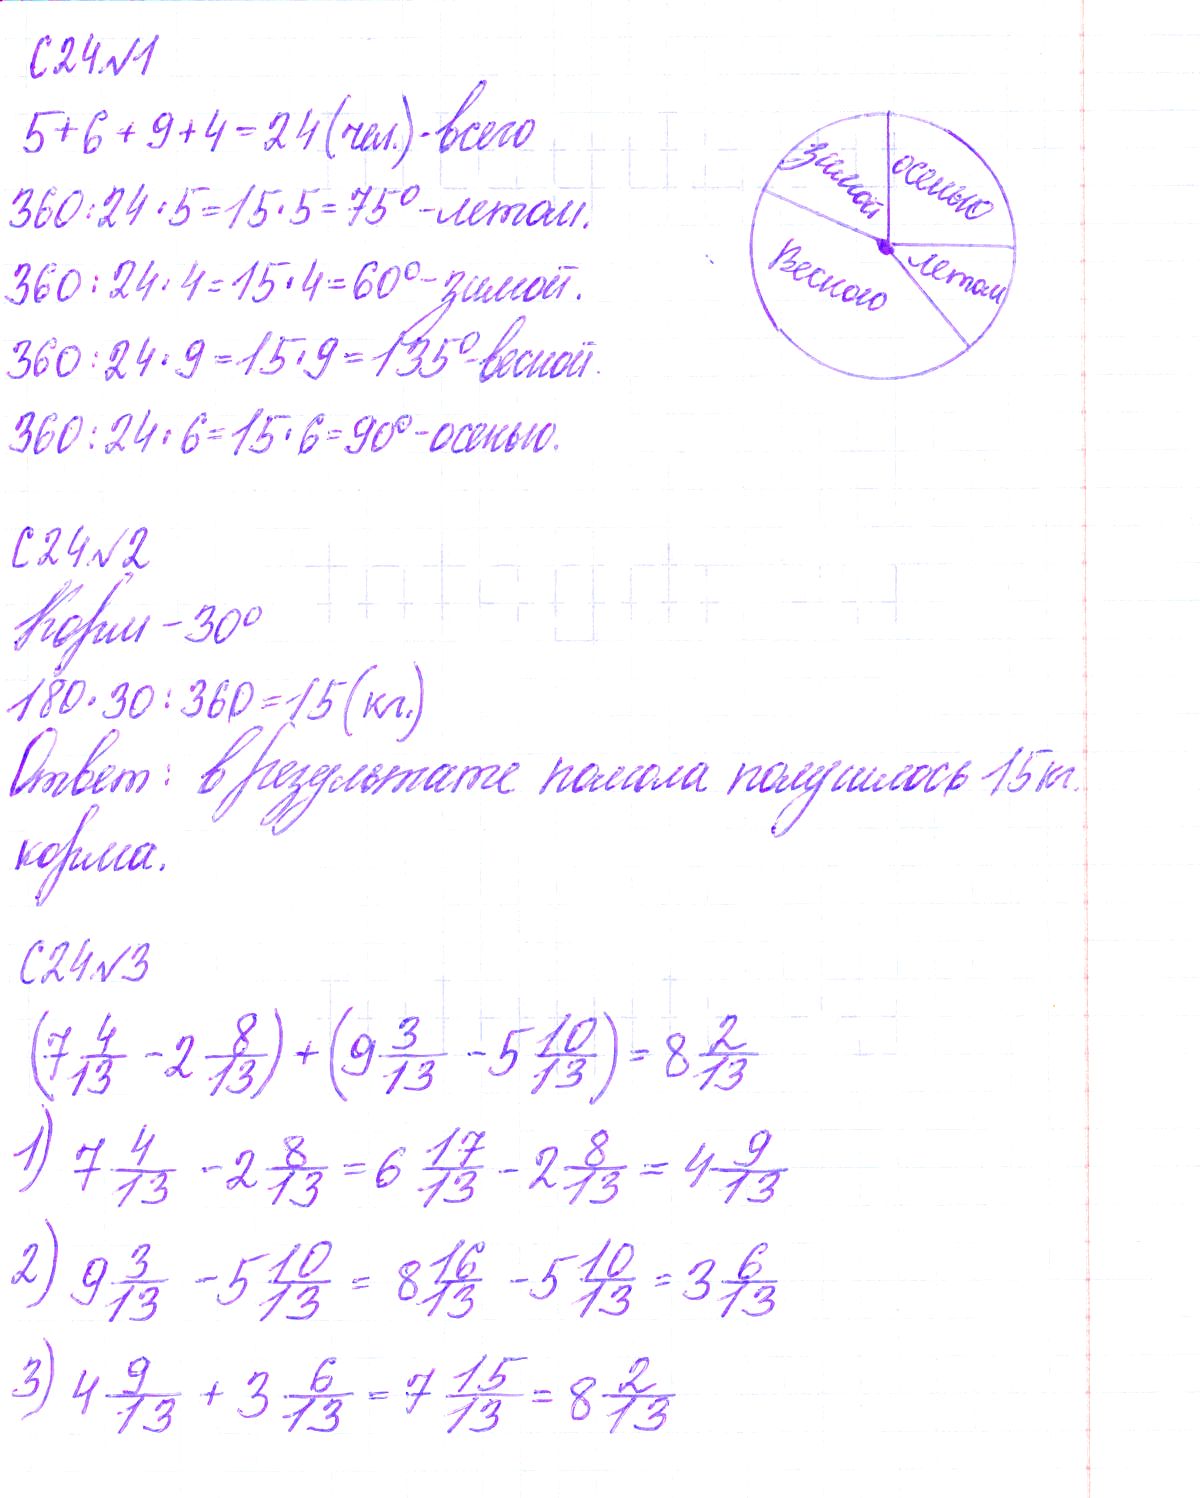 С24 №1
5+6+9+4=24 (чел.)-всего
360:24·5=15·5=75°-летом.
360:24·4=15·4=60°-зимой.
360:24·9=15·9=135°-весной.
360:24·6=15·6=90°-осенью.
зимой
осенью
Весного
летом
С24 №2
Корм -30°
180·30:360=15 (кг.)
Ответ: в результате помола получилось 15кг.
корма.
С24 №3
(7 4/13 - 2 8/13) + (9 3/13 - 5 10/13) = 8 2/13
1) 7 4/13 - 2 8/13 = 6 17/13 - 2 8/13 = 4 9/13
2) 9 3/13 - 5 10/13 = 8 16/13 - 5 10/13 = 3 6/13
3) 4 9/13 + 3 6/13 = 7 15/13 = 8 2/13